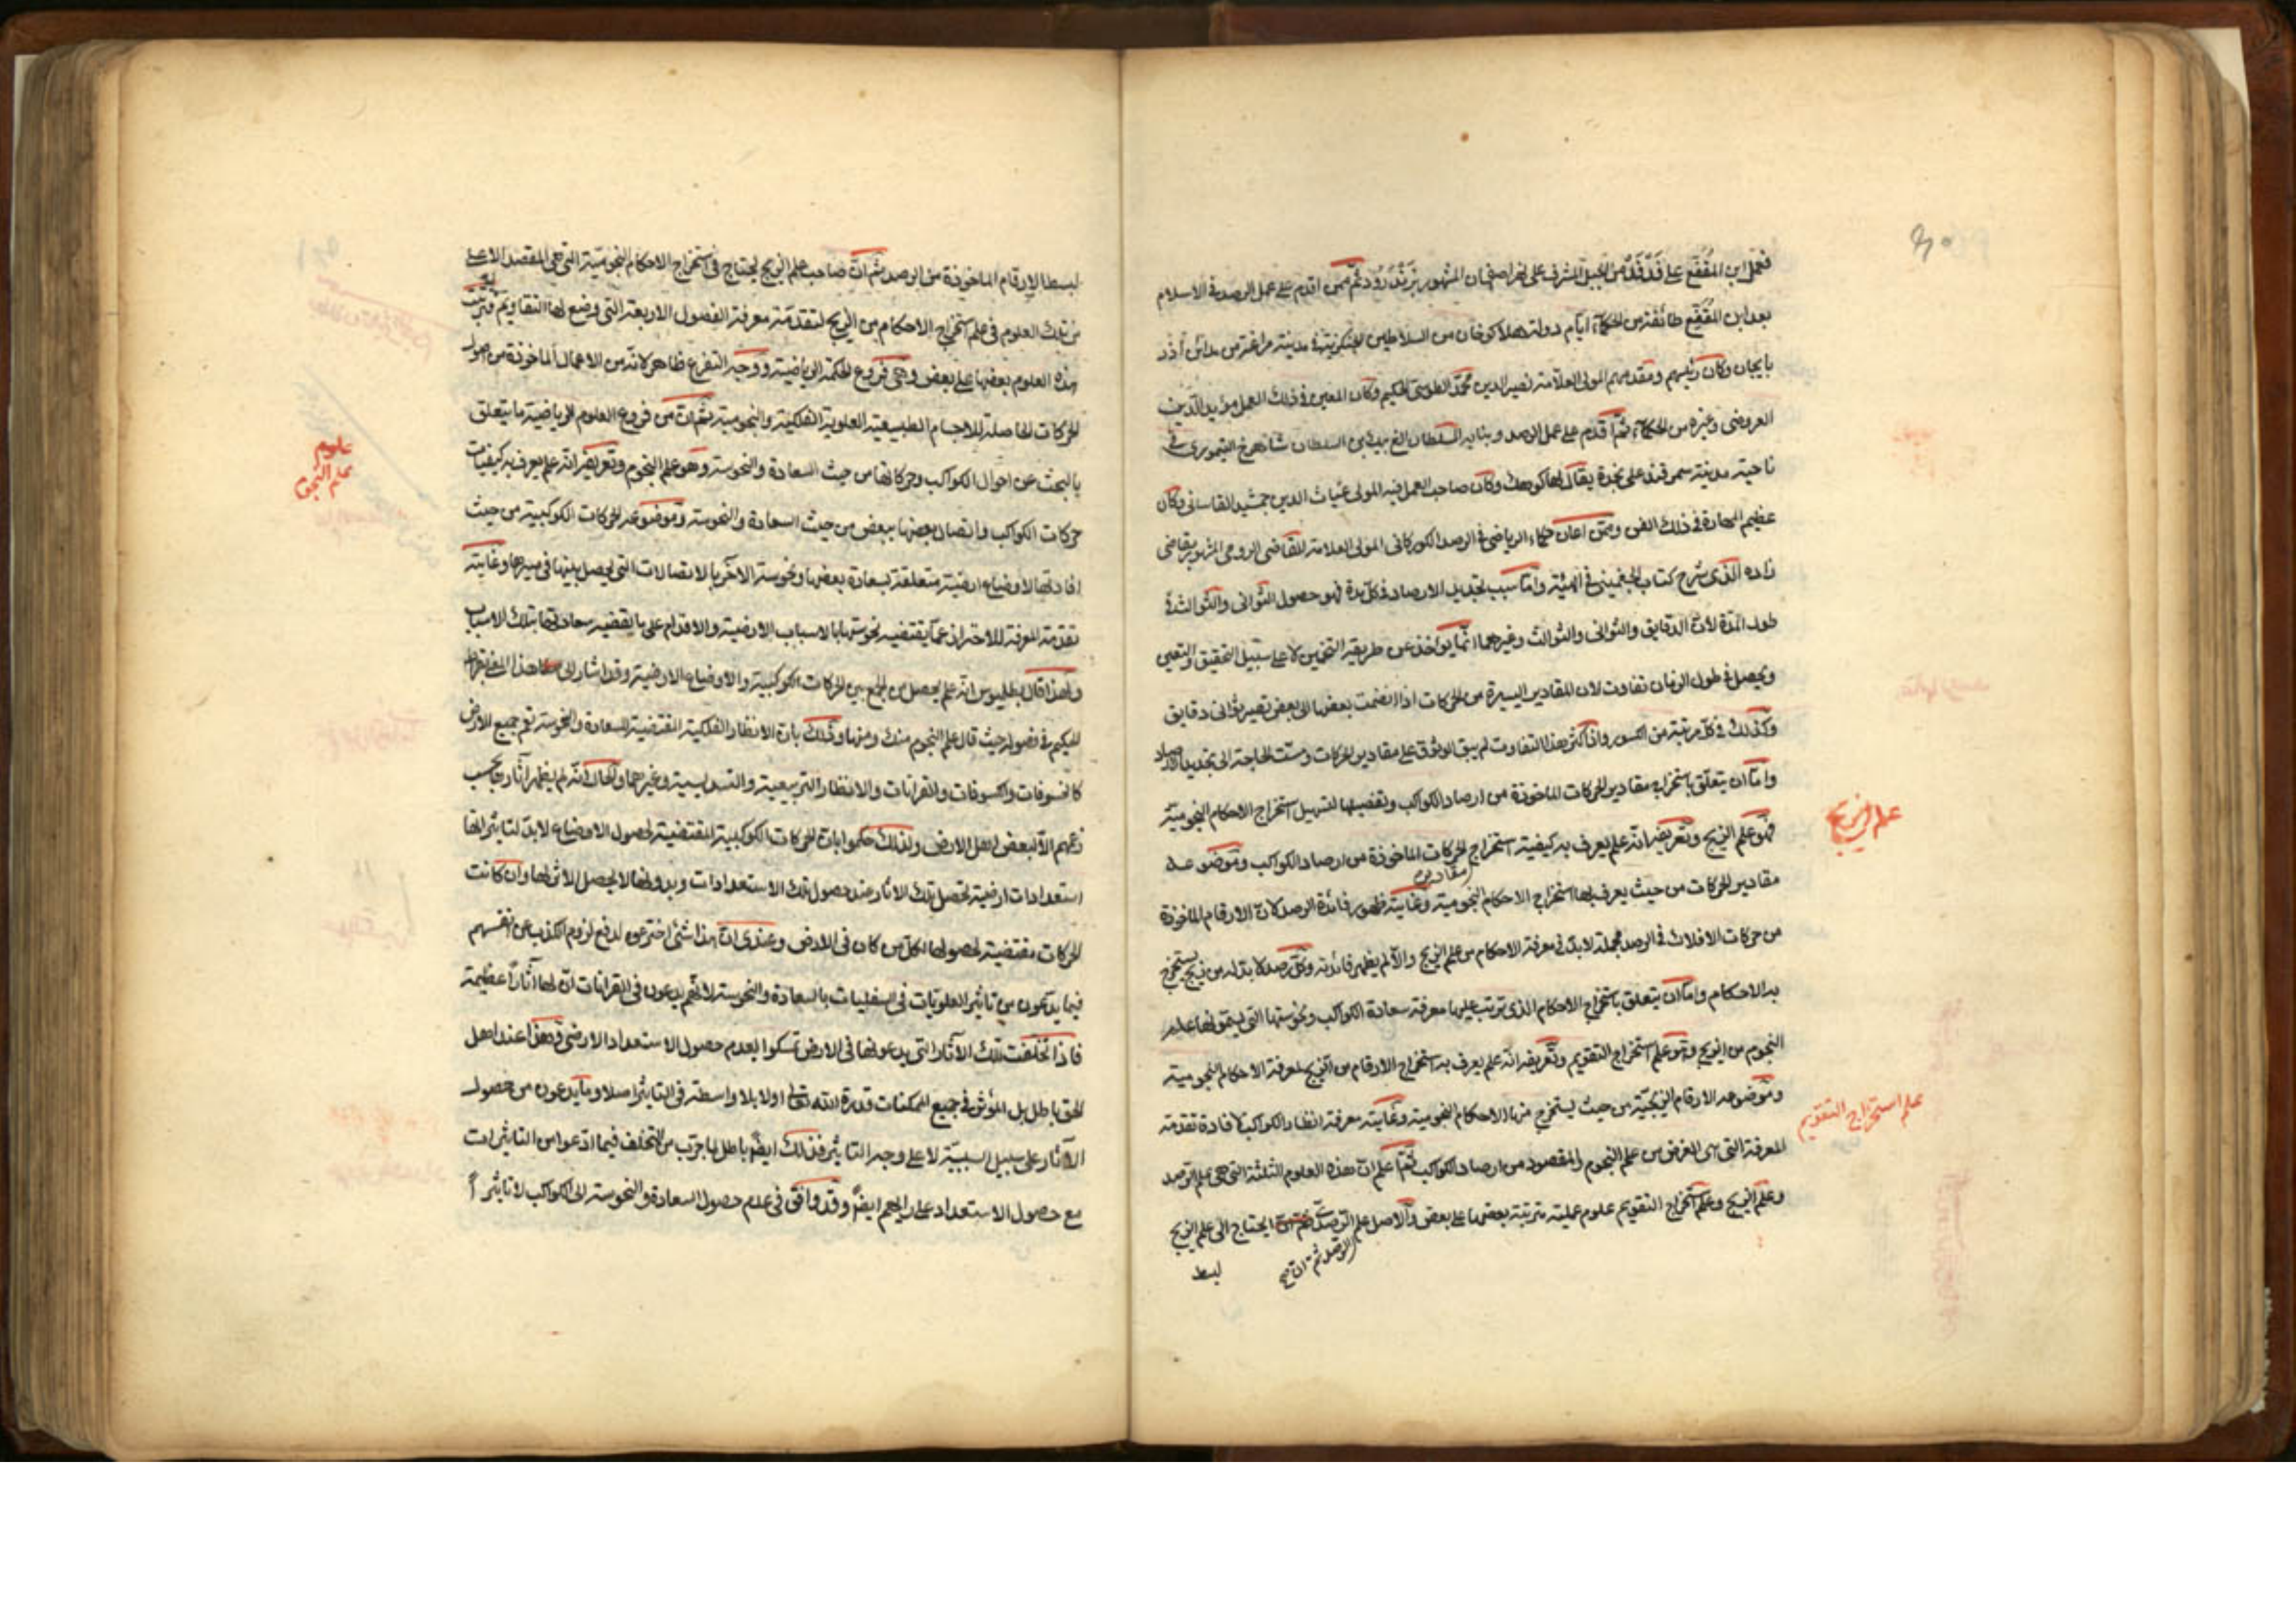 فعمل ابن المقفع على فدفد من الجبل المشرف على نهر اصفهان المشهور بزنده رود ثم ممن اقدم على عمل الرصد في الاسلام
بعد ابن المقفع طائفة من الحكماء ايام دولة هلاكو خان من السلاطين الجنكزية في مدينة مراغة من مدائن آذر
بايجان وكان رئيسهم ومقدمهم المولى العلامة نصير الدين محمد الطوسى الحكيم وكان المعين في ذلك العمل مؤيد الدين
العروضى وغيره من الحكماء ثم اقدم على عمل الرصد وبنائه السلطان الغ بيك بن السلطان شاهرخ التيمورى في
ناحية مدينة سمرقند على نجدة يقال لها كوهك وكان صاحب العمل فيه المولى غياث الدين جمشيد القاسانى وكان
عظيم المهارة في ذلك الفن وممن اعان حكماء الرياضى في الرصد الكوركانى المولى العلامة القاضى الرومى المشهور بقاضى
زاده الذى شرح كتاب الجغمينى في الهيئة واما سبب تجديد الارصاد في كل مدة فهو حصول الثوانى والثوالث في
طول المدة لان الدقايق والثوانى والثوالث وغيرهما انما يواخذ عن طريقة التخمين لا على سبيل التحقيق والتعيين
ويحصل في طول الزمان تفاوت لان المقادير اليسيرة من الحركات اذا انضمت بعضها الى بعض تصير ثوانى دقايق
وكذلك في كل مرتبة من الكسور واذا كثر هذا التفاوت لم يبق الوثوق على مقادير الحركات ومست الحاجة الى تجديد الارصاد
واما ان يتعلق باستخراج مقادير الحركات الماخوذة من ارصاد الكواكب وتفصيلها لتسهيل استخراج الاحكام النجومية
علم الزيج
فهو علم الزيج وتعريفه انه علم يعرف به كيفية استخراج الحركات الماخوذة من ارصاد الكواكب وموضوعه
مقادير
مقادير الحركات من حيث يعرف بها استخراج الاحكام النجومية وغايته ظهور فائدة الرصد لان الارقام الماخوذة
من حركات الافلاك في الرصد مجملة لابد في معرفة الاحكام من علم الزيج والا لم يظهر فائدته وكل رصد لا بد له من زيج يستخرج
به الاحكام واما ان يتعلق باستخراج الاحكام الذى يترتب عليها معرفة سعادة الكواكب ونحوستها التى يسمونها علم
النجوم من الزيج وهو علم استخراج التقويم وتعريفه انه علم يعرف به استخراج الارقام من الزيج لمعرفة الاحكام النجومية
علم استخراج التقويم
وموضوعه الارقام الزيجية من حيث يستخرج منها الاحكام النجومية وغايته معرفة انظار الكواكب لافادة تقدمة
المعرفة التى هى الغرض من علم النجوم والمقصود من ارصاد الكواكب ثم اعلم ان هذه العلوم الثلثة التى هى علم الرصد
وعلم الزيج وعلم استخراج التقويم علوم عملية مترتبة بعضها على بعض والاصل علم الرصد ثم ان يحتاج الى علم الزيج
الرصد ثم ان صح
لبسط
لبسط الارقام الماخوذة من الرصد ثم ان صاحب علم الزيج يحتاج في استخراج الاحكام النجومية التى هى المقصد الاعلى
من تلك العلوم في علم استخراج الاحكام من الزيج لتقدمة معرفة الفصول الاربعة التى وضع لها التقاويم فترتب
هذه العلوم بعضها على بعض وهى فروع الحكمة الرياضية ووجه التفرع ظاهر لانه من الاعمال الماخوذة من اصول
الحركات الحاصلة للاجسام الطبيعية العلوية الفلكية والنجومية ثم ان من فروع العلوم الرياضية ما يتعلق
علوم
علم النجوم
بالبحث عن احوال الكواكب وحركاتها من حيث السعادة والنحوسة وهو علم النجوم وتعريفه انه علم يعرف به كيفيات
حركات الكواكب واتصال بعضها ببعض من حيث السعادة والنحوسة وموضوعه الحركات الكوكبية من حيث
افادتها لاوضاع ارضية متعلقة بسعادة بعضها ونحوسة الآخر بالاتصالات التى يحصل بينها في سيرها وغايته
تقدمة المعرفة للاحتراز عما يقتضيه نحوستها بالاسباب الارضية والاقدام على ما يقتضيه سعادتها بتلك الاسباب
ولهذا قال بطلميوس انه علم يحصل من الجمع بين الحركات الكوكبية والاوضاع الارضية وقد اشار الى هذا المعنى بقراط
الحكيم في فصوله حيث قال علم النجوم منك ومنها وذلك بان الانظار الفلكية المقتضية للسعادة والنحوسة تعم جميع الارض
كالخسوفات والكسوفات والقرانات والانظار التربيعية والتسديسية وغيرهما والحال انه لم يظهر آثارها بحسب
زعمهم الا لبعض اهل الارض ولذلك حكموا بان الحركات الكوكبية المقتضية لحصول الاوضاع لابد لتاثيراتها
استعدادات ارضية تحصل تلك الاثار عند حصول تلك الاستعدادات وبدونها لا يحصل الاثر لها وان كانت
الحركات مقتضية لحصولها لكل من كان في الارض وعندى ان هذا شئ اخترعوه لدفع لزوم الكذب عن انفسهم
فيما يدعون من تاثير العلويات في السفليات بالسعادة والنحوسة لانهم يدعون في القرانات ان لها آثارا عظيمة
فاذا تخلفت تلك الآثار التى يدعونها في الارض تمسكوا بعدم حصول الاستعداد الارضى وهذا عند اهل
الحق باطل بل المؤثر في جميع الممكنات قدرة الله تعالى اولا بلا واسطة في التاثير اصلا وما يدعون من حصول
الآثار على سبيل السببية لا على وجه التاثير فذلك ايضا باطل لما جرب من التخلف فيما ادعوا من التاثيرات
مع حصول الاستعداد على رايهم ايضا وقد وافق في عدم حصول السعادة والنحوسة الى الكواكب لا تاثيرا